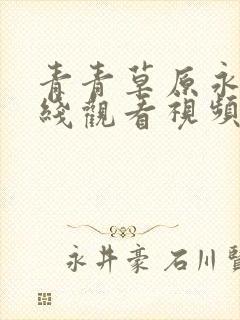 青青草原永
綫觀看視頻
永井豪 石川賢